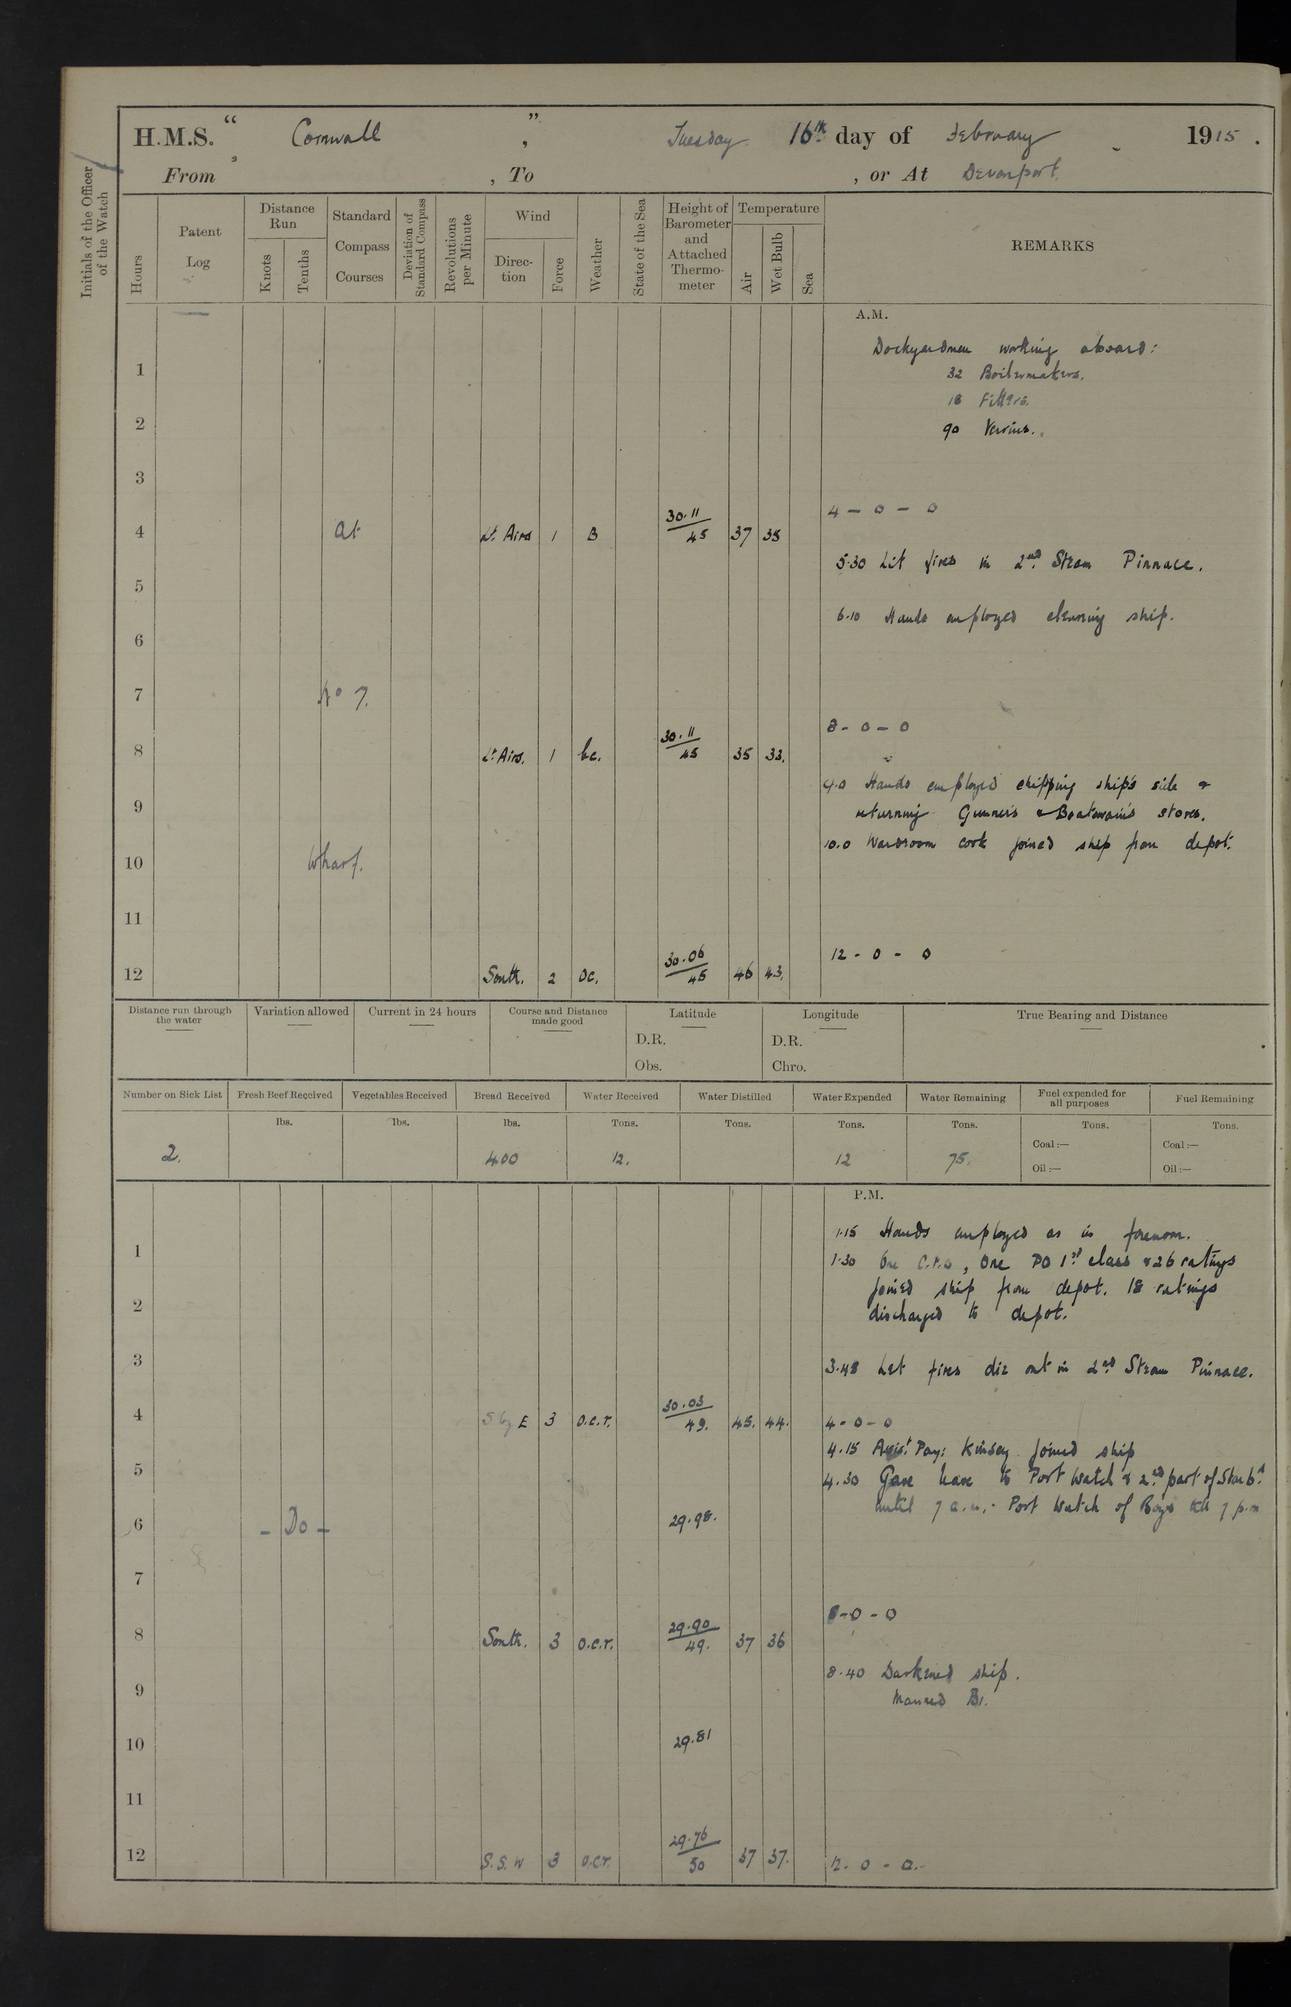 H.M.S. “ Cornwall ” , Tuesday 16th day of February 1915 .
From , To , or At Devonport.
Initials of the Officer of the Watch
Hours
Patent Log
Distance Run
Knots
Tenths
Standard Compass Courses
Deviation of Standard Compass
Revolutions per Minute
Wind
Direction
Force
Weather
State of the Sea
Height of Barometer and Attached Thermometer
Temperature
Air
Wet Bulb
Sea
REMARKS
A.M.
Dockyardmen working aboard:
1
32 Boilermakers.
18 Fitters.
2
90 Various.
3
4 - 0 - 0
4 At Lt. Airs 1 B 30.11/45 37 35
5.30 Lit fires in 2nd Steam Pinnace.
5
6.10 Hands employed cleaning ship.
6
7 No 7.
8 - 0 - 0
8 Lt Airs. 1 bc. 30.11/45 35 33.
9.0 Hands employed chipping ship's side &
9
returning Gunner's & Boatswain's stores.
10.0 Wardroom cook joined ship from depot.
10 Wharf.
11
12 - 0 - 0
12 South. 2 oc. 30.06/45 46 43.
Distance run through the water
Variation allowed
Current in 24 hours
Course and Distance made good
Latitude
D.R.
Obs.
Longitude
D.R.
Chro.
True Bearing and Distance
Number on Sick List Fresh Beef Received Vegetables Received Bread Received Water Received Water Distilled Water Expended Water Remaining Fuel expended for all purposes Fuel Remaining
lbs. lbs. lbs. Tons. Tons. Tons. Tons. Tons. Tons.
Coal :— Coal :—
2. 400 12. 12 75.
Oil :— Oil :—
P.M.
1.15 Hands employed as in forenoon.
1
1.30 One C.P.O, One PO 1st class & 26 ratings
joined ship from depot. 18 ratings
2
discharged to depot.
3
3.48 Let fires die out in 2nd Steam Pinnace.
4 S by E 3 o.c.r. 30.03/49. 45. 44. 4 - 0 - 0
4.15 Asst Pay: Kinsey joined ship
5
4.30 Gave leave to Port Watch & 2nd part of Starbd
until 7 a.m. - Port Watch of Boys till 7 p.m
6 - Do - 29.98.
7
8 - 0 - 0
8 South. 3 o.c.r. 29.90/49. 37 36
8.40 Darkened ship.
9
Manned
10 29.81
11
12 S.S.W 3 o.c.r. 29.76/50 37 37. 12 - 0 - 0.